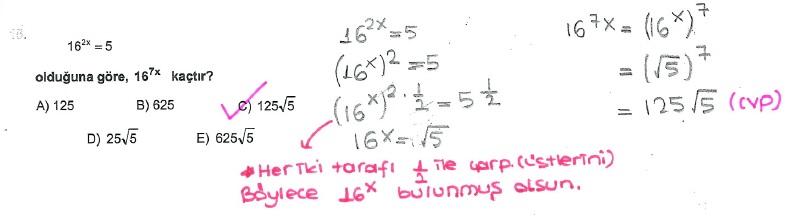 15.
16^{2x} = 5
olduğuna göre, 16^{7x} kaçtır?
A) 125 B) 625 C) 125√5
D) 25√5 E) 625√5
16^{2x} = 5
(16^x)^2 = 5
(16^x)^{2 · 1/2} = 5^{1/2}
16^x = √5
* Her iki tarafı 1/2 ile çarp. (üstlerini)
Böylece 16^x bulunmuş olsun.
16^{7x} = (16^x)^7
= (√5)^7
= 125√5 (cvp)